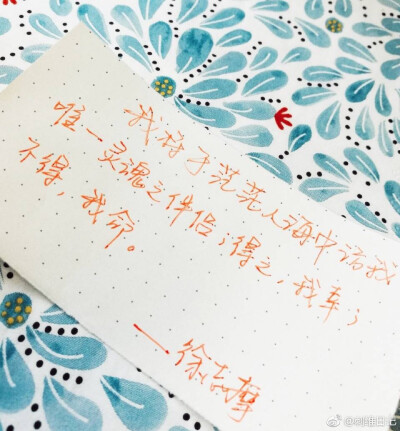 我将于茫茫人海中访我
唯一灵魂之伴侣；得之，我幸；
不得，我命。
——徐志摩